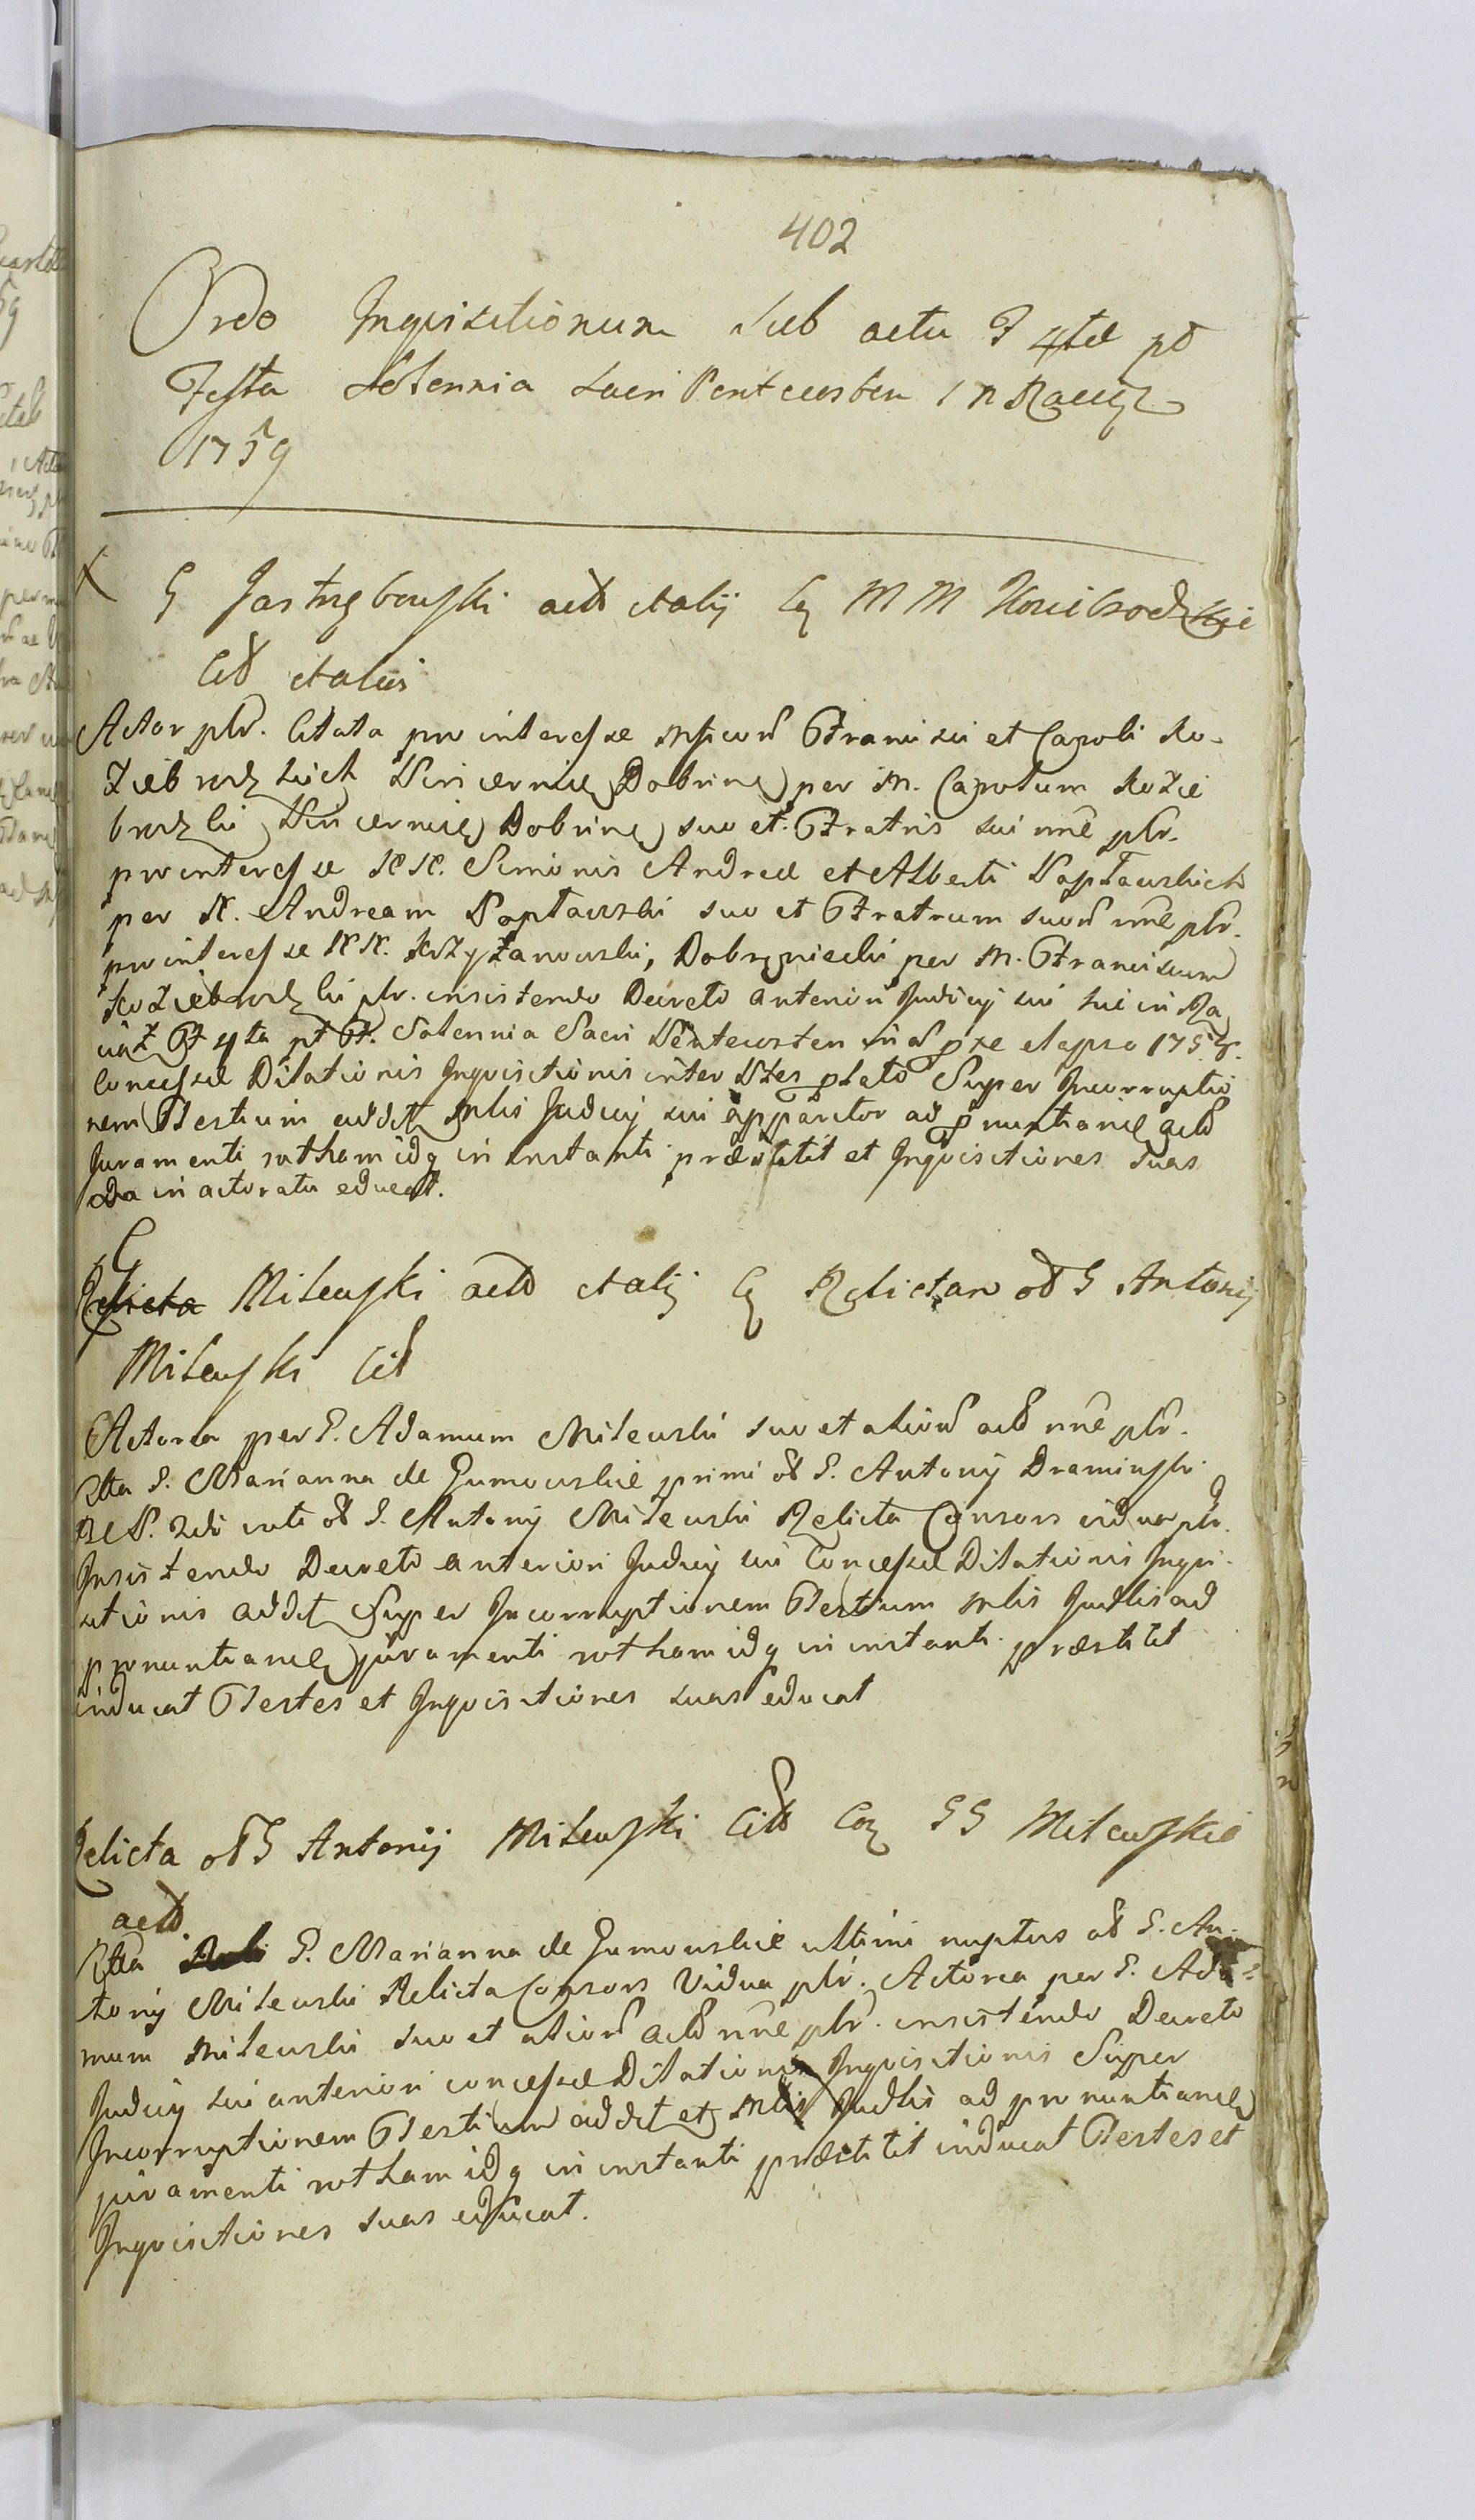 402
Ordo Inquisitionum sub actu F 4ta pt
Festa Solennia Sacri Pentecosten in Raciąż
1759
G Jastrzębowski act et alij C MM Koziebrodzkie
Cit et alios
Actor ptr. Citata pro interesse Mficor Francisci et Caroli Ko-
ziebrodzkich Pincernic Dobrinen per M. Carolum Kozie
brodzki Pincernic Dobrinen suo et Fratris sui nne ptr.
pro interesse NN. Simonis Andreæ et Alberti Popławskich
per N. Andream Popławski suo et Fratrum suor nne ptr.
pro interesse NN. Krzyżanowski, Dobrzyniecki per M. Franciscum
Koziebrodzki ptr. insistendo Decreto anteriori Judicij sui hic in Ra
ciąż F 4ta pt F. Solennia Sacri Pentecosten in A pxe elapso 1758.
Concessæ Dilationis Inquisitionis inter Ptes plato Super Incorruptio
nem Testium addit Mlis Judicij sui apparitor ad pnuntianc act
Juramenti rotham idq in instanti præstitit et Inquisitiones suas
in actoratu educat.
G
Relicta Milewski act et alij C Relictam ol G Antonij
Milewski Cit
Actorea per G. Adamum Milewski suo et alior act nne ptr.
Citta G. Marianna de Gumowskie primi ol G. Antonij Draminski
2do voti ol G. Antonij Milewski Relicta Consors vidua ptr.
Insistendo Decreto anteriori Judicij sui Concessæ Dilationis Inqui-
sitionis addit Super Incorruptionem Testium Mlis Judlis ad
pronuntianc juramenti rotham idq in instanti præstitit
inducat Testes et Inquisitiones suas educat
Relicta ol G Antonij Milewski Cit Con GG Milewskie
act
Citta G. Marianna de Gumowskie ultimi nuptus ol G. An-
tonij Milewski Relicta Consors Vidua ptr. Actorea per G. Ada-
mum Milewski suo et alior act nne ptr. insistendo Decreto
Judicij sui anteriori concessæ Dilationis Inquisitionis Super
Incorruptionem Testium addit et Mlis Judlis ad pronuntianc
juramenti rotham idq in instanti præstitit inducat Testes et
Inquisitiones suas educat.